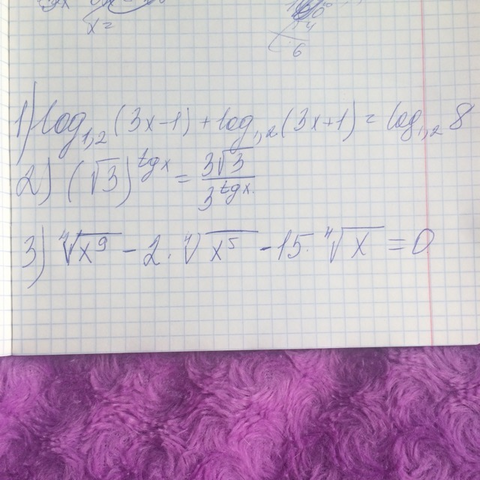 x =
6
1) log₁,₂(3x-1) + log₁,₂(3x+1) = log₁,₂ 8
2) (√3)^tgx = 3√3 / 3^tgx.
3) ⁴√x⁹ - 2 · ⁴√x⁵ - 15 · ⁴√x = 0